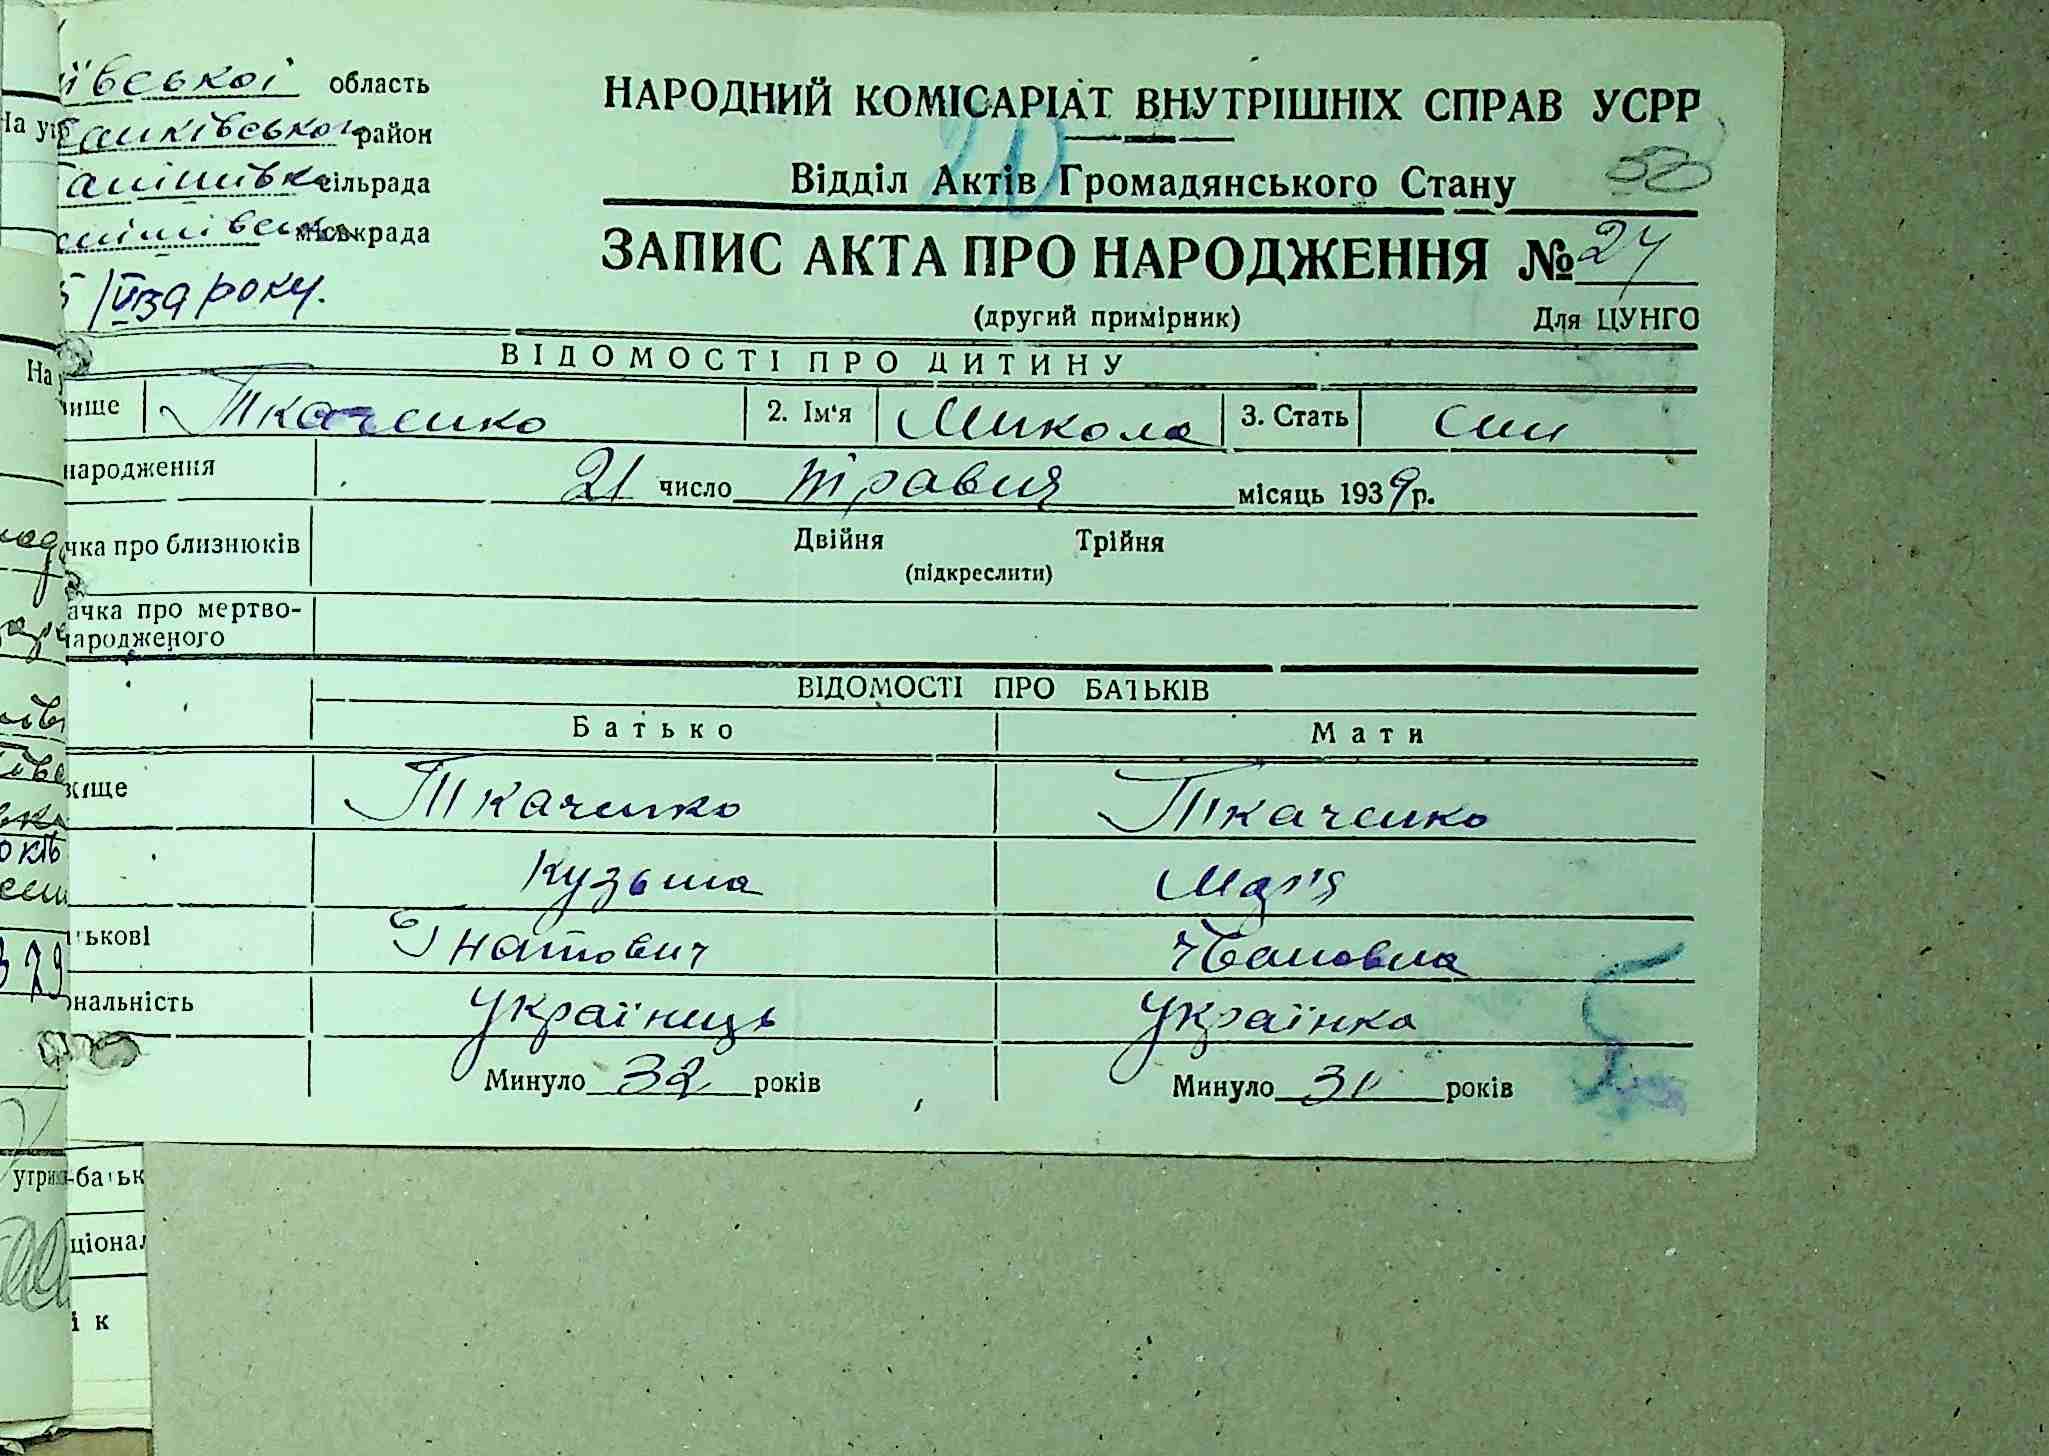 ївської область
район
сільрада
міськрада
5/VI 39 року.
НАРОДНИЙ КОМІСАРІАТ ВНУТРІШНІХ СПРАВ УСРР
Відділ Актів Громадянського Стану
50
ЗАПИС АКТА ПРО НАРОДЖЕННЯ № 24
(другий примірник) Для ЦУНГО
ВІДОМОСТІ ПРО ДИТИНУ
ище Ткаченко 2. Ім'я Микола 3. Стать син
народження 21 число травня місяць 1939 р.
чка про близнюків Двійня Трійня
(підкреслити)
ачка про мертво-
народженого
ВІДОМОСТІ ПРО БАТЬКІВ
Батько Мати
ище Ткаченко Ткаченко
Кузьма Мар'я
ькові Гнатович Івановна
нальність Українець Українка
Минуло 32 років Минуло 31 років
-батьк
ціонал
і к